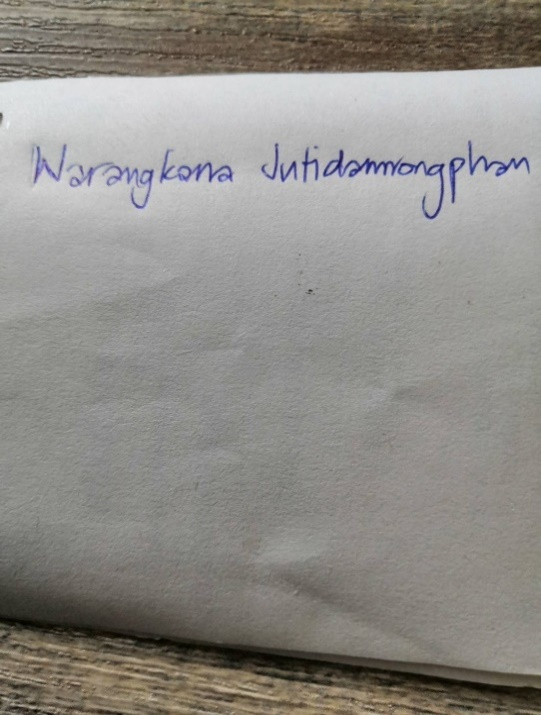 Warangkana Jutidamrongphan